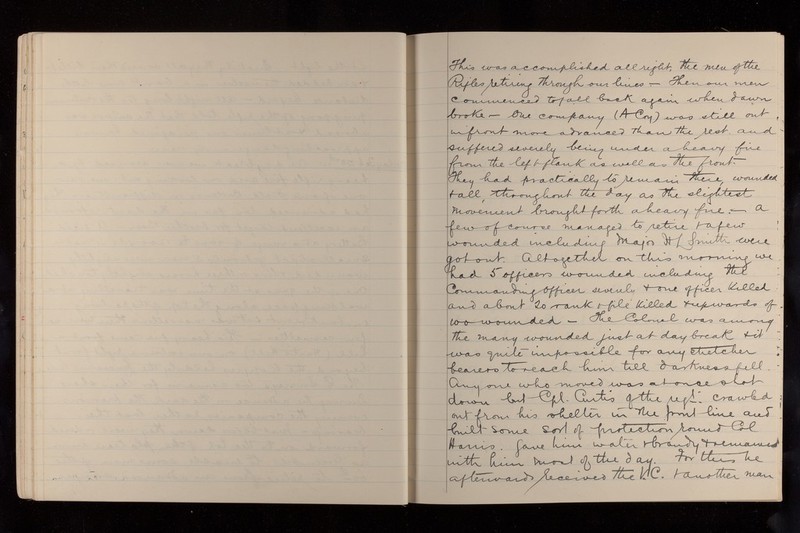 This was accomplished all right, the men of the
Rifles retiring through our lines — Then our men
commenced to fall back again when dawn
broke — One company (A Coy) was still out
in front more advanced than the rest and
suffered severely being under a heavy fire
from the left flank as well as the front
They had practically to remain there, wounded
& all, throughout the day as the slightest
movement brought forth a heavy fire — a
few of course managed to retire & a few
wounded including Major Smith were
got out. Altogether on this morning we
had 5 officers wounded including the
Commanding Officer severely & one officer killed
and about 20 rank & file killed & upwards of
100 wounded — The Colonel was among
the many wounded just at day break & it
was quite impossible for any stretcher
bearers to reach him till darkness fell.
Any one who moved was at once shot
down but Cpl. Curtis of the regt. crawled
out from his shelter in the front line and
built some sort of protection round Col
Harris. Gave him water & brandy & remained
with him most of the day. For this he
afterwards received the V.C. & another man